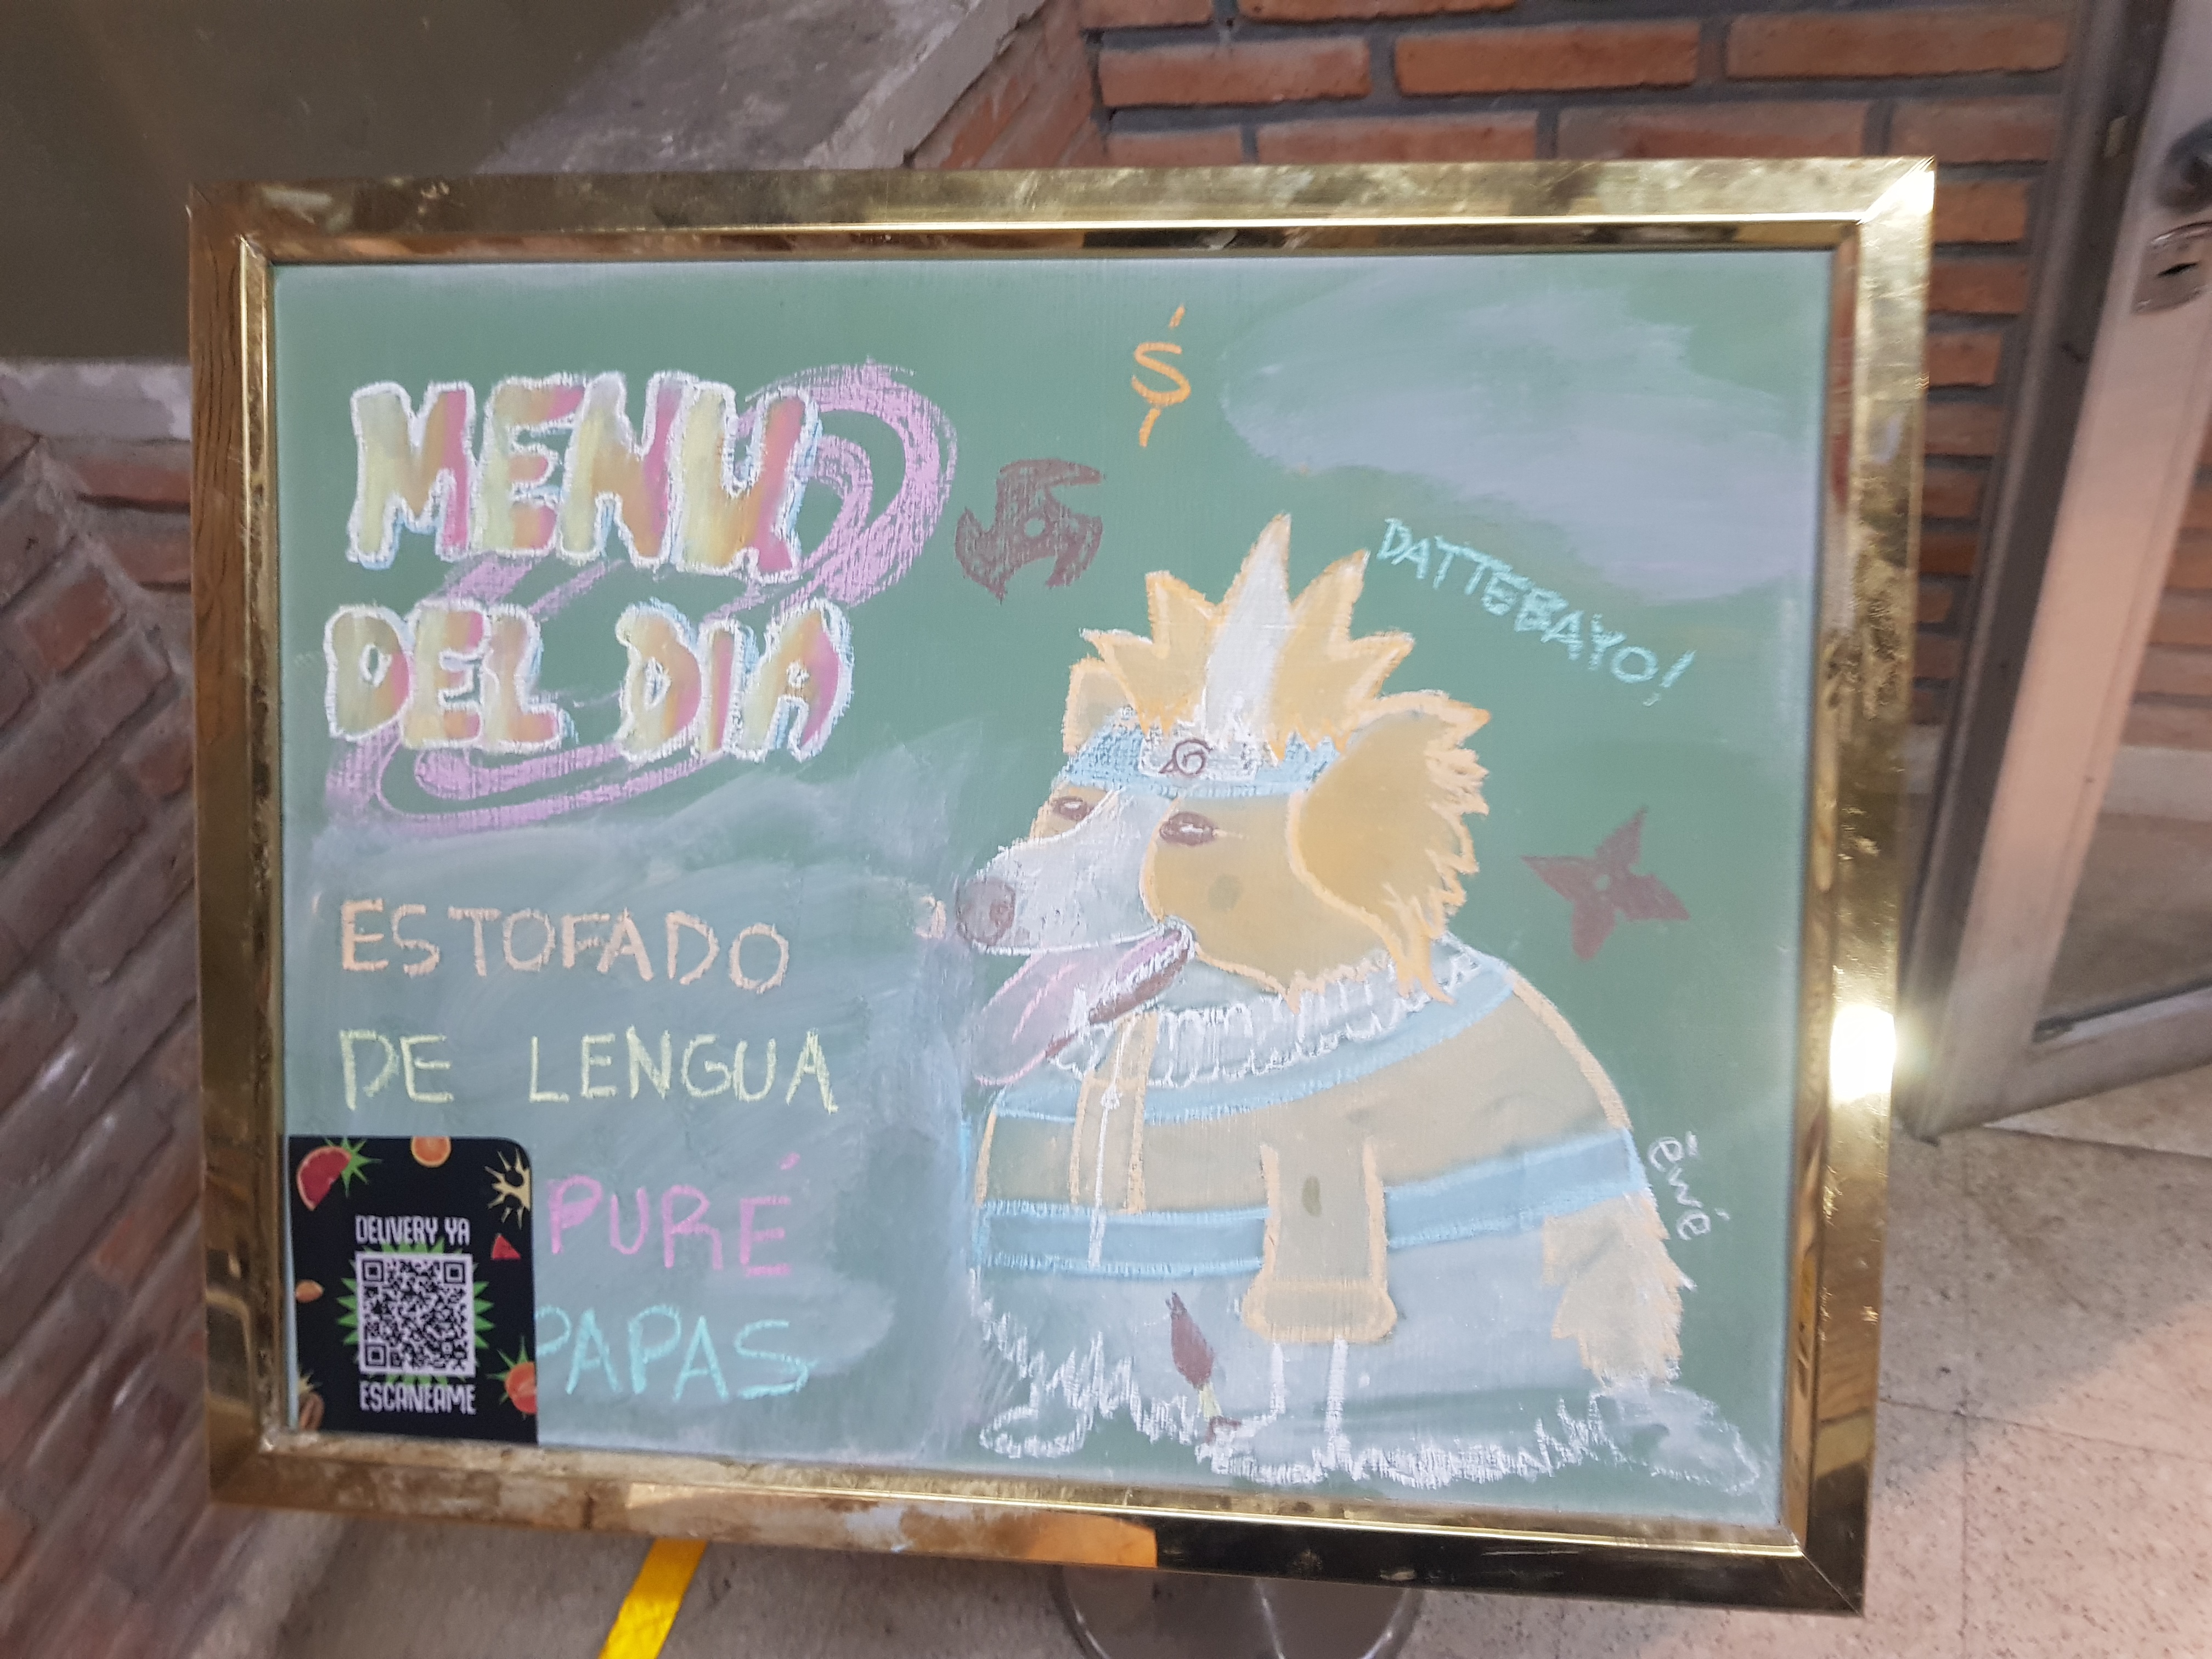 MENU
DEL DIA
$
DATTEBAYO!
ESTOFADO
DE LENGUA
PURÉ
PAPAS
DELIVERY YA
ESCANEAME